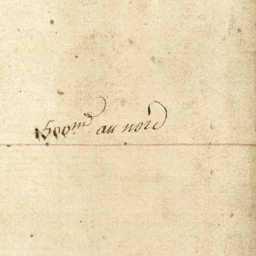 1500m au nord